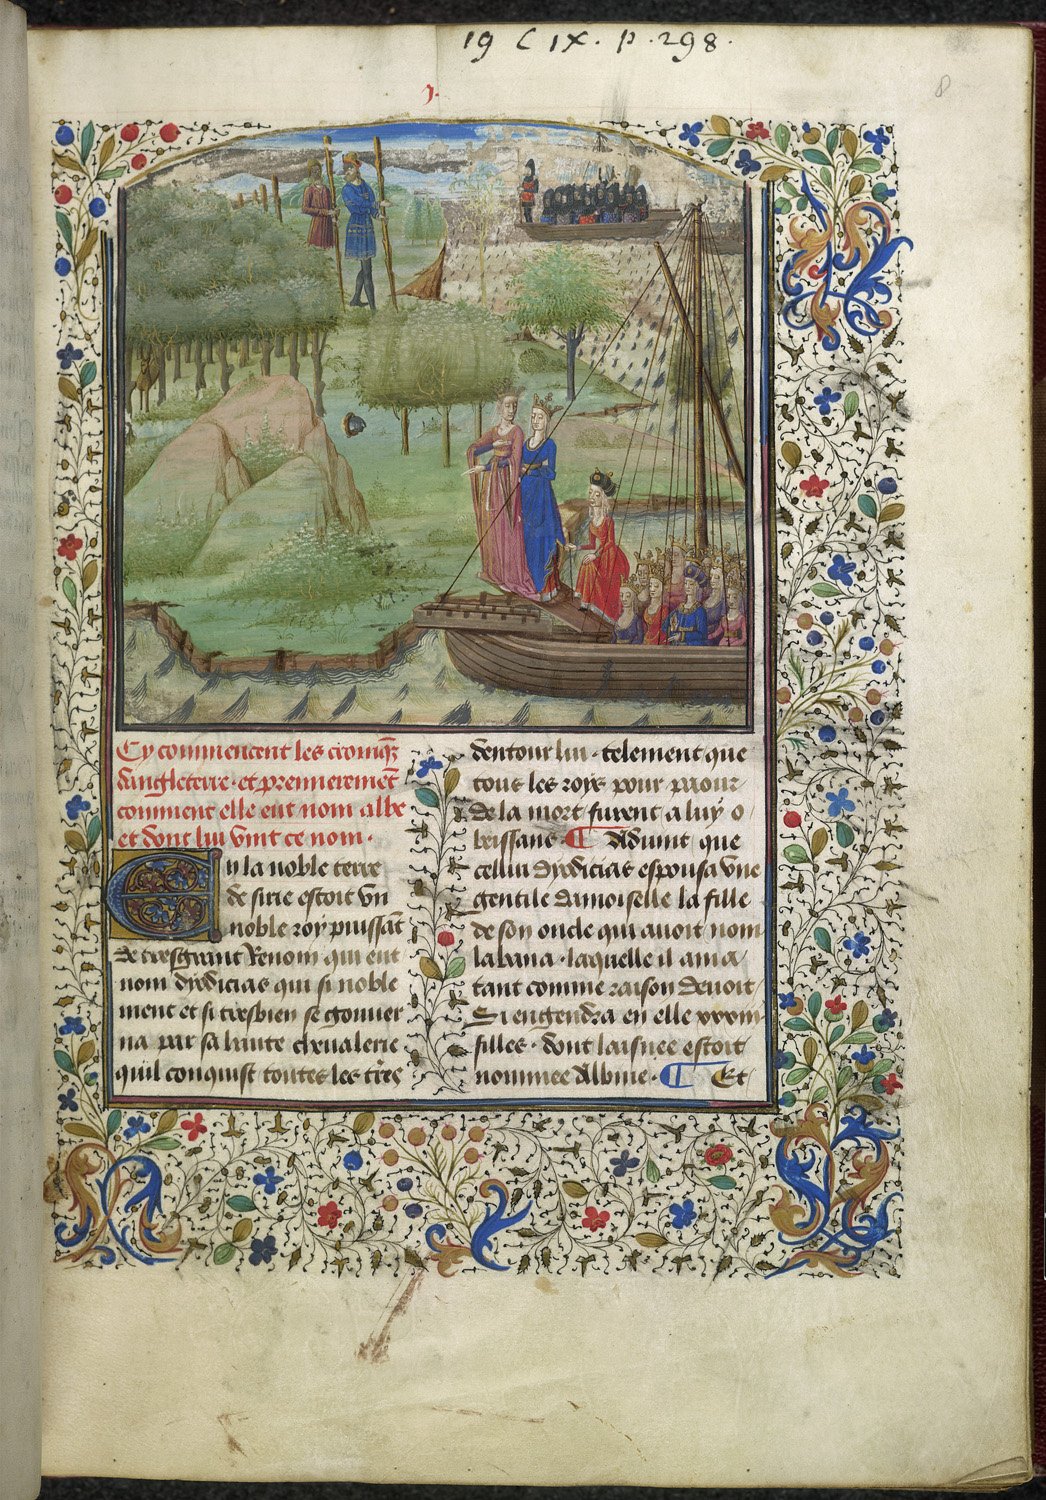 19 C IX. p. 298.
8
j.
Cy commencent les croniq̃s
dangleterre . et premieremẽt
comment elle eut nom albe
et dont lui vint ce nom .
En la noble terre
de sirie estoit vn
noble roy puissãt
de tresgrant Renom qui eut
nom dyodicias qui si noble
ment et si tresbien se gouuer
na par sa haute cheualerie
quil conquist toutes les tr̃es
dentour lui . telement que
tous les roys pour paour
de la mort furent a luy o
beissans . ¶ Aduint que
cellui dyodicias espousa vne
gentile damoiselle la fille
de son oncle qui auoit nom
labana . laquelle il ama
tant comme raison deuoit
Si engendra en elle xxxiij
filles . dont laisnee estoit
nommee Albine . ¶ Et